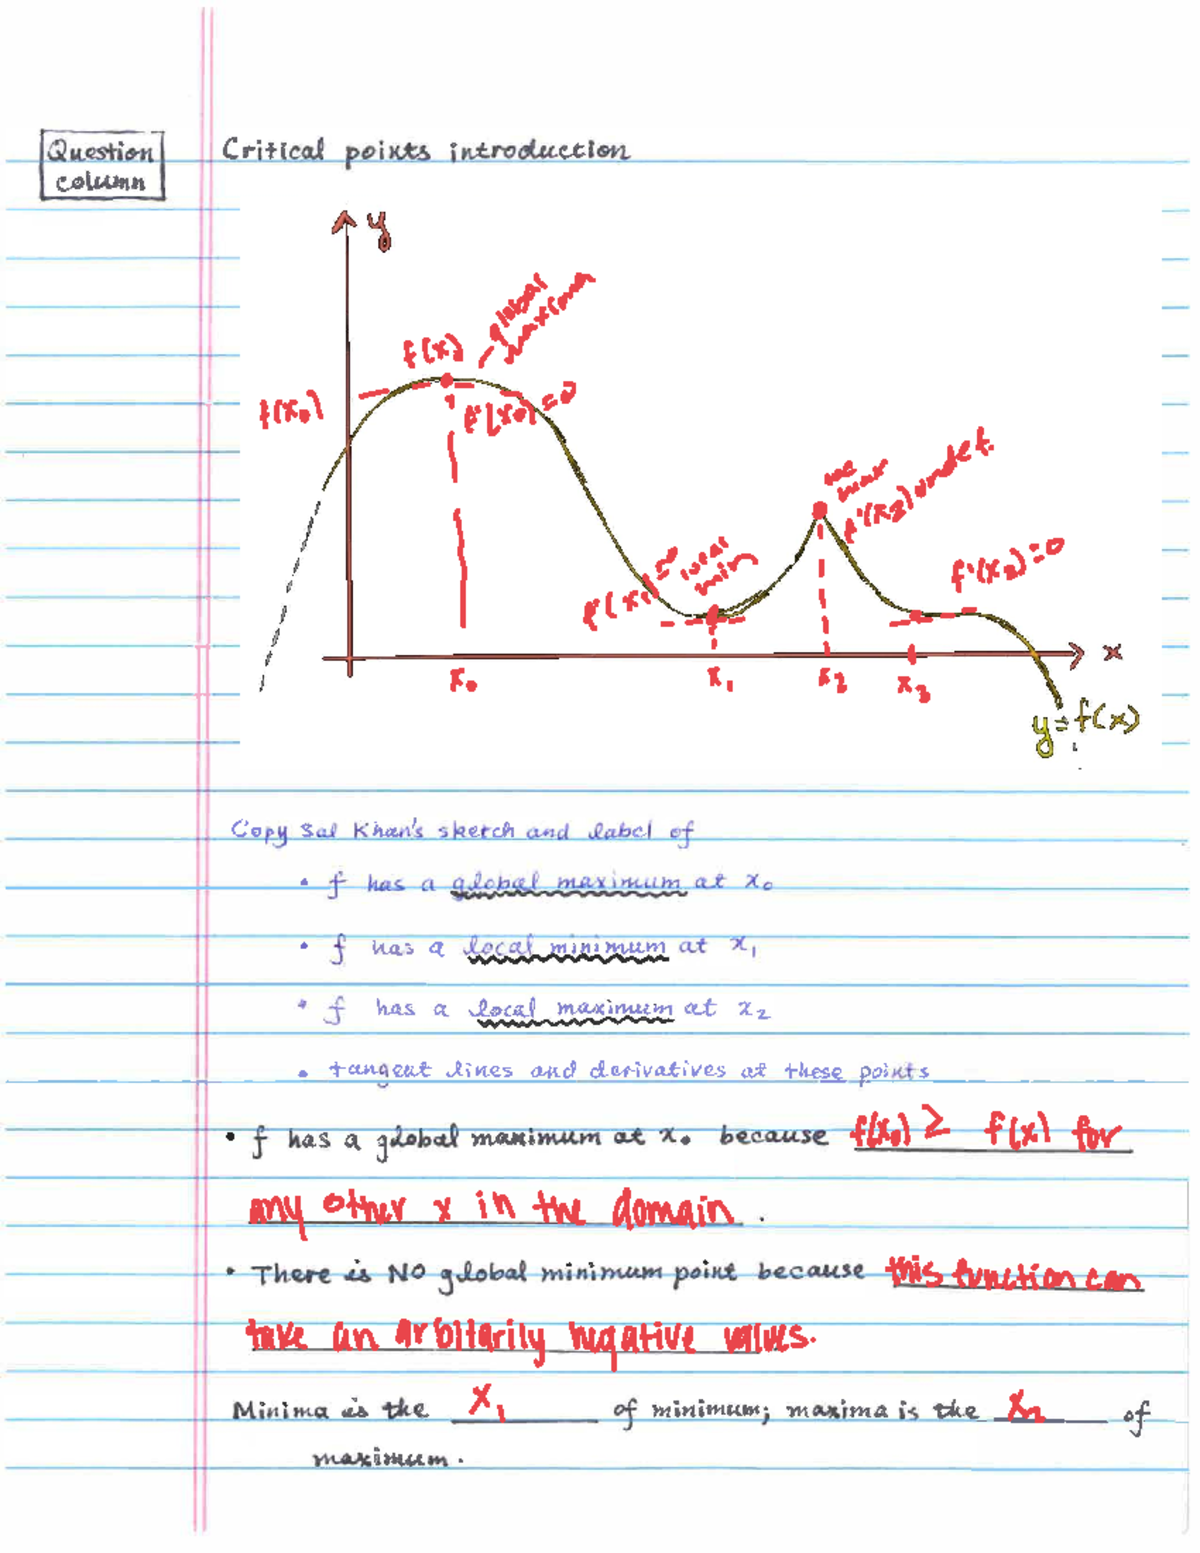 Question
column
Critical points introduction
y
global
maximum
f(x)
f(x₀)
f'(x₀)=0
max
f'(x₂) undef.
local
min
f'(x₁
f'(x₃)=0
x
x₀
x₁
x₂
x₃
y=f(x)
Copy Sal Khan's sketch and label of
• f has a global maximum at x₀
• f has a local minimum at x₁
• f has a local maximum at x₂
• tangent lines and derivatives at these points
• f has a global maximum at x₀ because f(x₀) ≥ f(x) for
any other x in the domain.
• There is NO global minimum point because this function can
take an arbitarily negative values.
Minima is the x₁ of minimum; maxima is the x₂ of
maximum.